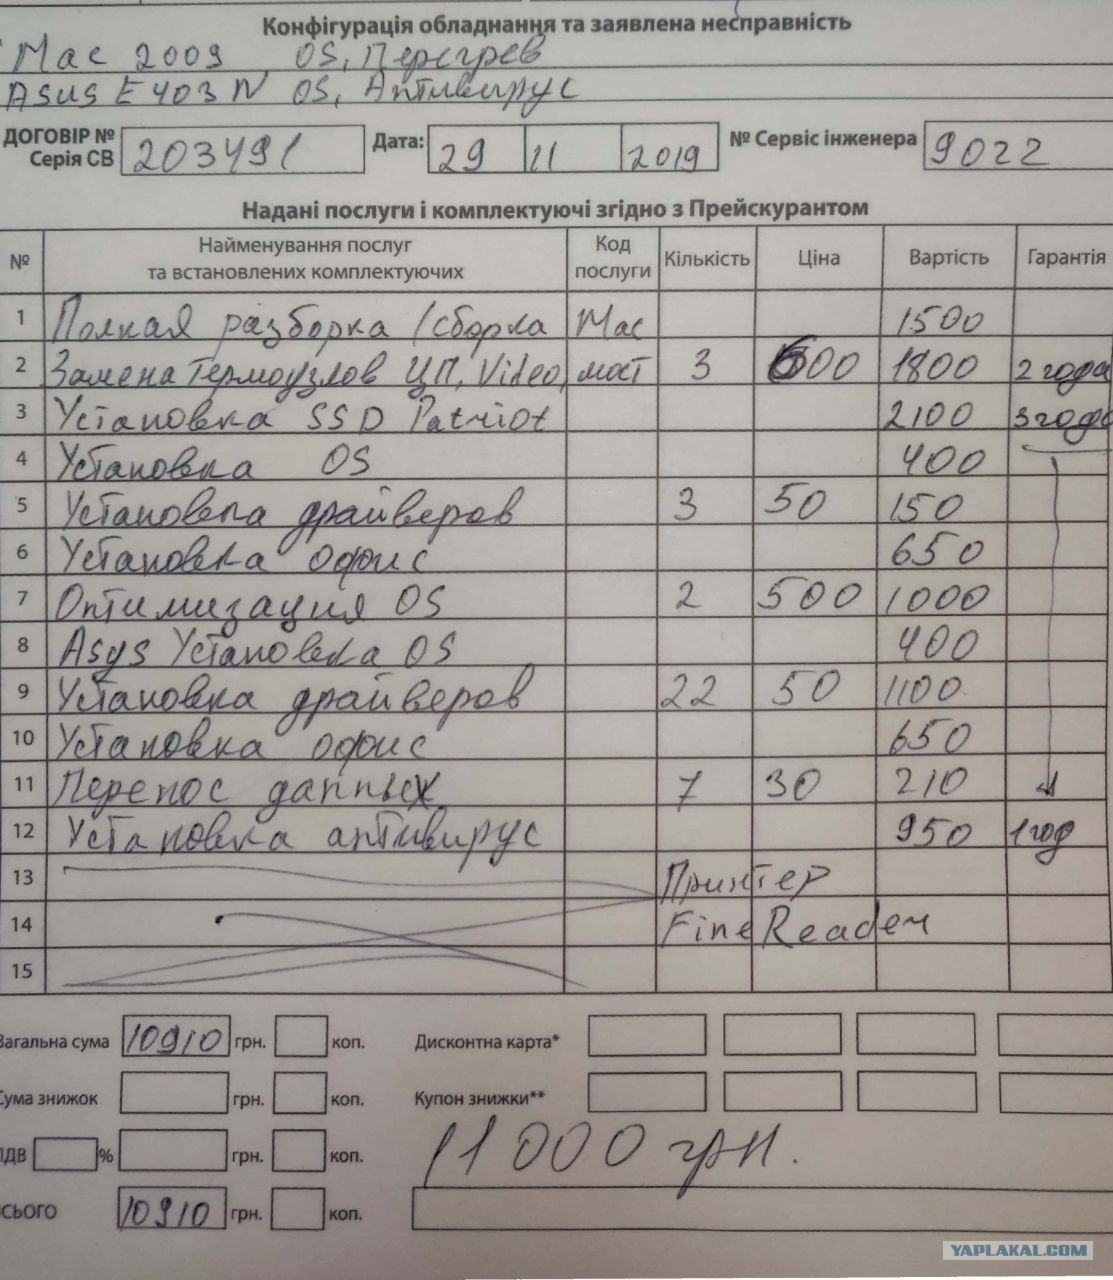 Конфігурація обладнання та заявлена несправність
Mac 2009 OS, Перегрев
Asus E403N OS, Антивирус
ДОГОВІР № Серія СВ 203491 Дата: 29 11 2019 № Сервіс інженера 9022
Надані послуги і комплектуючі згідно з Прейскурантом
№ Найменування послуг та встановлених комплектуючих Код послуги Кількість Ціна Вартість Гарантія
1 Полная разборка / сборка Mac 1500
2 Замена термоузлов ЦП, Video, мост 3 600 1800 2 года
3 Установка SSD Patriot 2100 3 года
4 Установка OS 400
5 Установка драйверов 3 50 150
6 Установка офис 650
7 Оптимизация OS 2 500 1000
8 Asys Установка OS 400
9 Установка драйверов 22 50 1100
10 Установка офис 650
11 Перенос данных 7 30 210
12 Установка антивирус 950 1 год
13 Принтер
14 FineReader
15
Загальна сума 10910 грн. коп. Дисконтна карта*
Сума знижок грн. коп. Купон знижки**
ПДВ % грн. коп. 11000 грн.
Всього 10910 грн. коп.
YAPLAKAL.COM